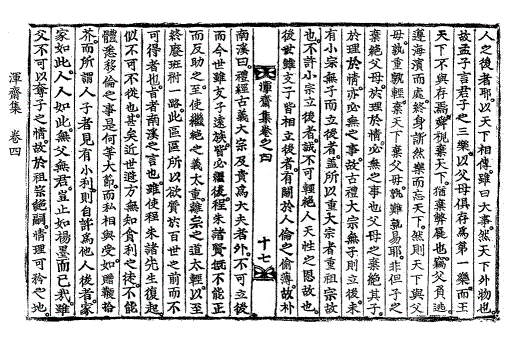 人之後者耶以天下相傳雖曰大事然天下外物也
故孟子言君子之三樂以父母俱存爲第一樂而王
天下不與存焉舜視棄天下猶棄弊屣也竊父負逃
遵海濱而處終身訢然樂而忘天下然則天下與父
母孰重孰輕棄天下棄父母孰難孰易耶非但子之
棄絶父母於理於情必無之事也父母之棄絶其子
於理於情亦必無之事故古禮大宗無子則立後未
有小宗無子而立後者盖所以重大宗者重祖宗故
也不許小宗立後者誠不可輕絶人天性之恩故也
後世雖支子皆相立後者有關於人倫之偷薄故朴
渾齋集卷之四
十七
南溪曰禮經古義大宗及貴爲大夫者外不可立後
而今世雖支子遠族皆必繼後程朱諸賢旣不能正
而反助之至使繼絶之義大重離宗之道太輕以至
終廢班祔一路此區區所以欲質於百世之前而不
可得者也旨者南溪之言也雖使程朱諸先生復起
似不可不從也甚矣近世遐方無知貪利之徒不能
體悉移倫之事是何等大節而私相與受如贈鞭拾
芥而所謂人子者見有小利則自許爲他人後者家
家如此人人如此無父無君豈止如楊墨而已哉雖
父不可以奪子之情故於祖宗絶嗣情理可矜之地
渾齋集 卷四